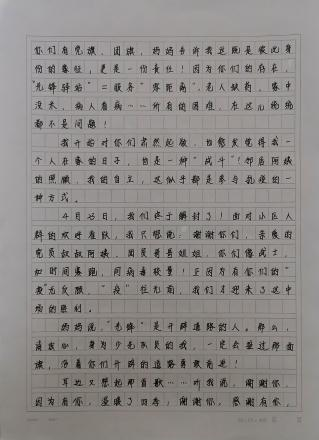 你们有党旗、团旗，妈妈告诉我这既是彼此身
份的象征，更是一份责任！因为你们的存在，
"先锋驿站"＝服务"零距离"，老人缺药，家中
没米，病人看病……所有的困难，在这儿统统
都不是问题！
我开始对你们肃然起敬，也愈发觉得我一
个人在家的日子，也是一种"战斗"！邻居阿姨
的照顾，我的自立，这似乎都是参与抗疫的一
种方式。
4月25日，我们终于解封了！面对小区人
群的欢呼雀跃，我只想说：谢谢你们，亲爱的
党员叔叔阿姨、团员哥哥姐姐，你们像战士，
和时间赛跑，同病毒较量！正因为有你们的"
我"无反顾，"疫"往无前，我们才迎来了这中
场的胜利。
妈妈说，"先锋"是开辟道路的人。那么，
请放心，身为少先队员的我，一定会接过那面
旗，沿着你们开辟的道路勇敢前进！
耳边又想起那首歌……听我说，谢谢你，
因为有你，温暖了四季，谢谢你，感谢有你，